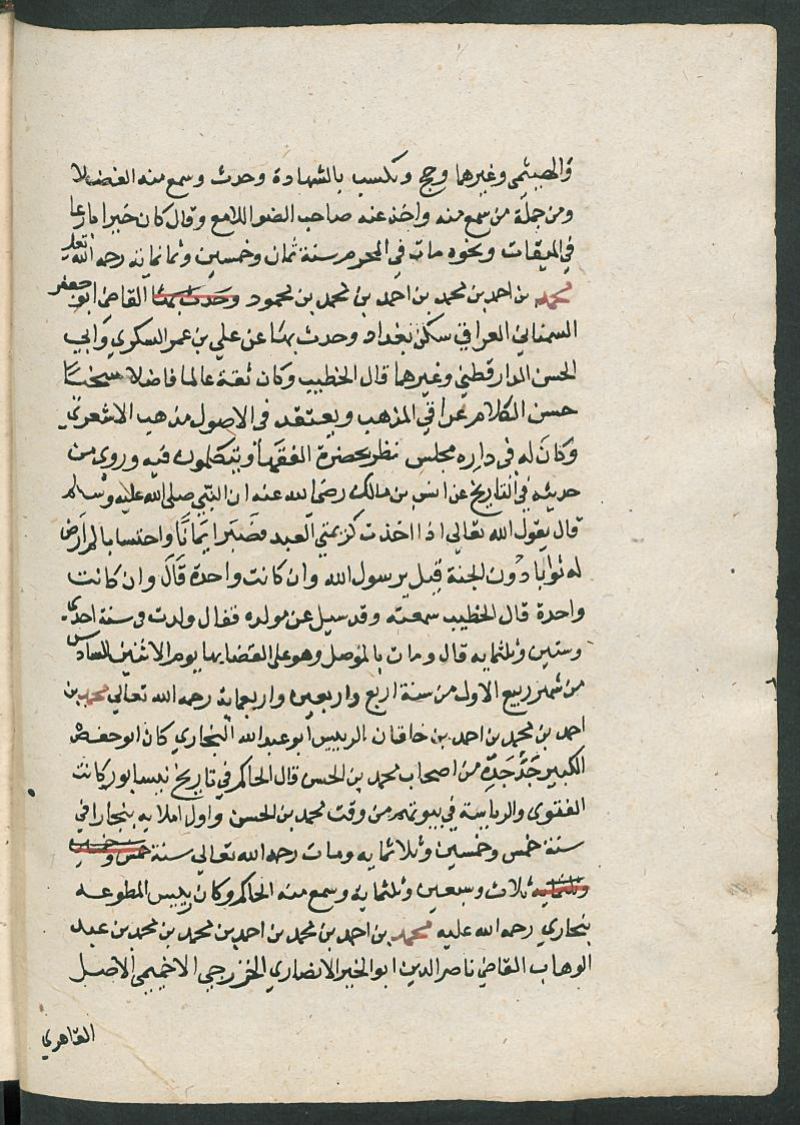 والهيثمي وغيرهما وحج وتكسب بالشهادة وحدث وسمع منه الفضلا
ومن جملة من سمع منه واخذ عنه صاحب الضو اللامع وقال كان خيرا بارعا
في الميقات ونحوه مات في المحرم سنة ثمان وخمسين وثمانمائة رحمه الله تعلى
محمد بن احمد بن محمد بن احمد بن محمد بن محمود وحدث بها القاضي ابو جعفر
السمناني العراقي سكن بغداد وحدث بها عن علي بن عمر السكري وابي
الحسن الدارقطني وغيرهما قال الخطيب وكان ثقة عالما فاضلا سخيا
حسن الكلام عراقي المذهب ويعتقد في الاصول مذهب الاشعري
وكان له في داره مجلس نظر يحضره الفقهاء ويتكلمون فيه وروي من
حديثه في التاريخ عن انس بن مالك رضي الله عنه ان النبي صلى الله عليه وسلم
قال يقول الله تعالى اذا اخذت كريمتي العبد فصبر ايمانا واحتسابا لم ارض
له ثوابا دون الجنة قيل يرسول الله وان كانت واحدة قال وان كانت
واحدة قال الخطيب سمعته وقد سيل عن مولده فقال ولدت في سنة احدى
وستين وثلثمايه قال ومات بالموصل وهو على القضا بها يوم الاثنين السادس
من شهر ربيع الاول من سنة اربع واربعين واربعماية رحمه الله تعالى محمد بن
احمد بن محمد بن احمد بن خاقان الرييس ابو عبد الله البخاري كان ابو حفص
الكبير جد جده من اصحاب محمد بن الحسن قال الحاكم في تاريخ نيسابور كانت
الفتوى والرياسة في بيوتهم من وقت محمد بن الحسن واول املايه ببخارا في
سنة خمس وخمسين وثلاثمايه ومات رحمه الله تعالى سنة خمس وخمسين
وثلثمايه ثلاث وسبعين وثلثماية وسمع منه الحاكم وكان رييس المطوعه
ببخاري رحمه الله عليه محمد بن احمد بن محمد بن احمد بن محمد بن محمد بن عبد
الوهاب القاضي ناصر الدين ابو الخير الانصاري الخزرجي الاخميمي الاصل
القاهري